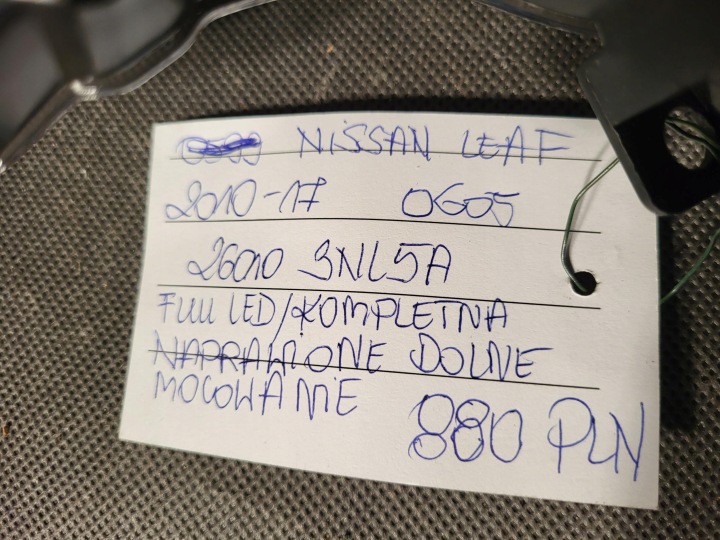 NISSAN LEAF
2010-17 0G05
26010 3NL5A
FULL LED/KOMPLETNA
NAPRAWIONE DOLNE
MOCOWANIE 880 PLN